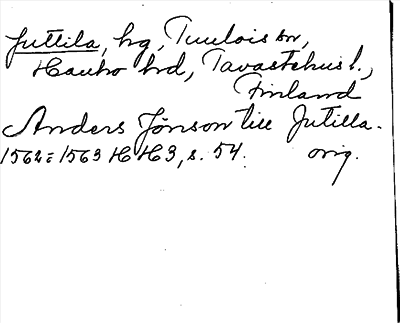 Juttila, hg, Tuulois sn,
Hauho hd, Tavastehus l.,
Finland
Anders Jönson till Jutilla.
1562=1563 H H3, s. 54. orig.